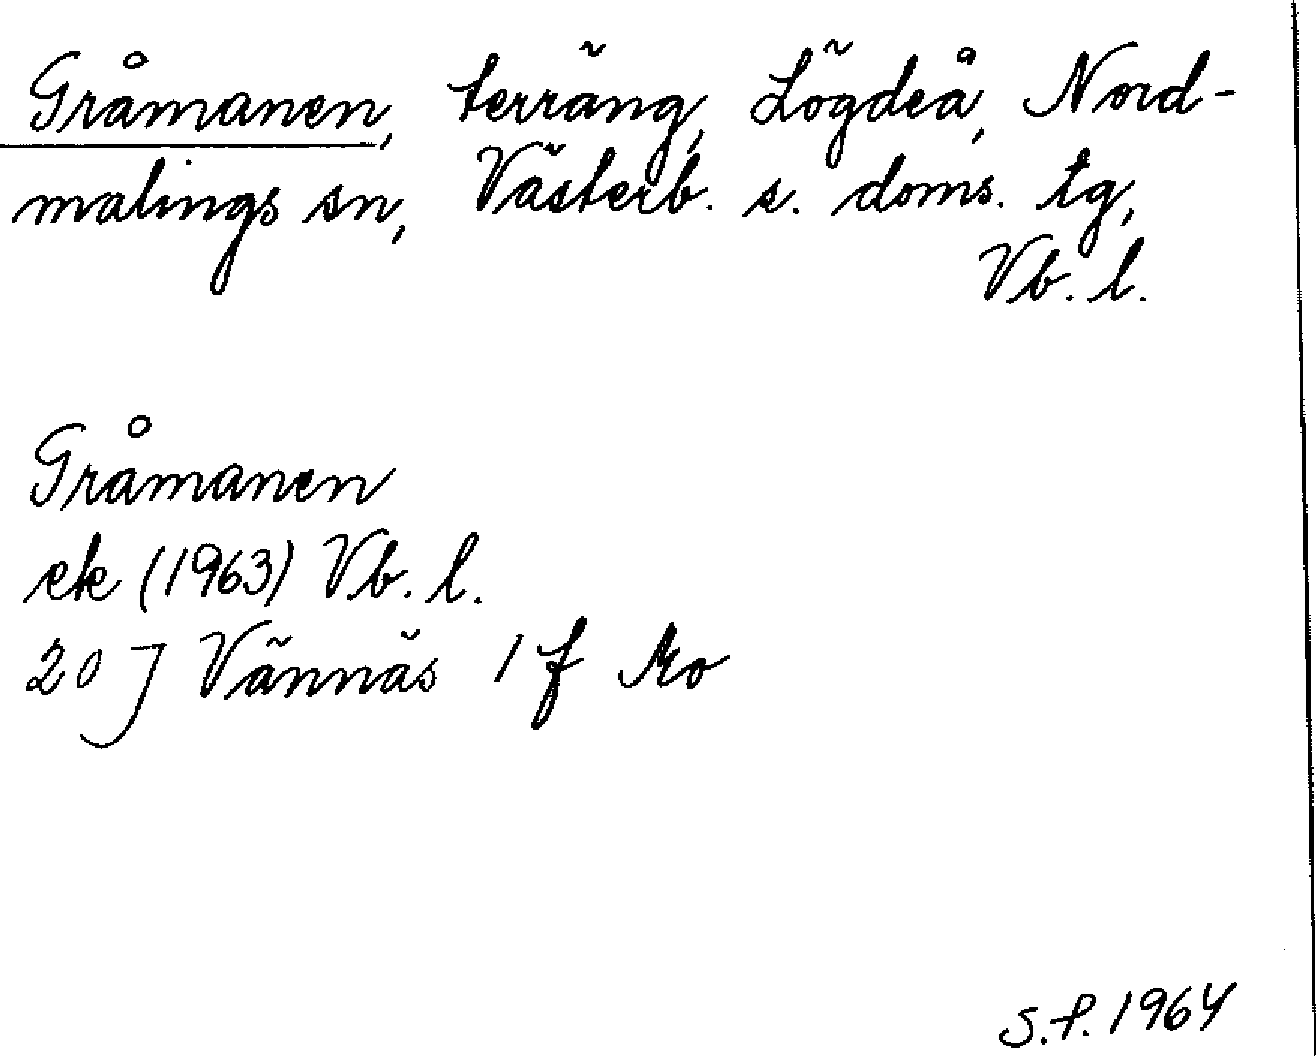 Gråmanen, terräng, Lögdeå, Nord-
malings sn, Västerb. s. doms. tg,
Vb. l.
Gråmanen
ek (1963) Vb. l.
20 J Vännäs 1 f Mo
S.F. 1964